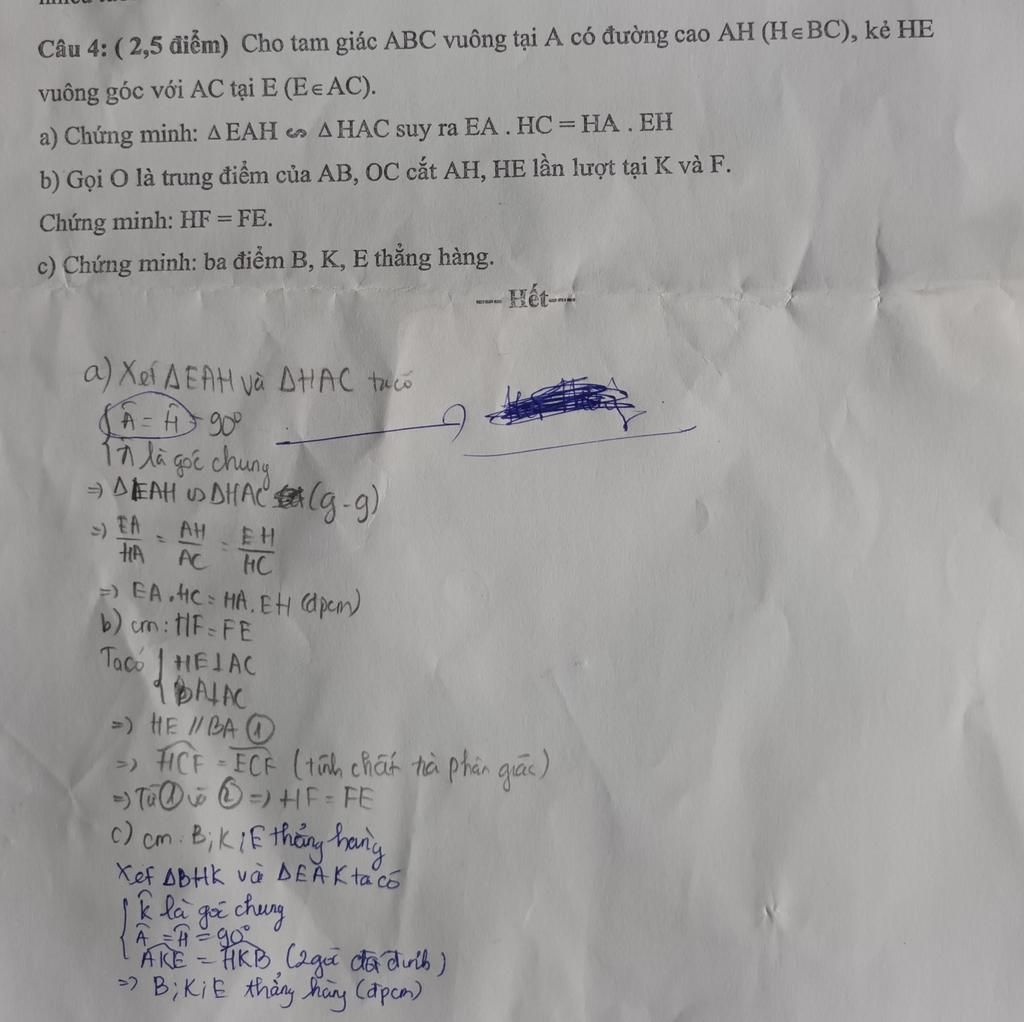 Câu 4: ( 2,5 điểm) Cho tam giác ABC vuông tại A có đường cao AH (H∈BC), kẻ HE
vuông góc với AC tại E (E∈AC).
a) Chứng minh: Δ EAH ∽ Δ HAC suy ra EA . HC = HA . EH
b) Gọi O là trung điểm của AB, OC cắt AH, HE lần lượt tại K và F.
Chứng minh: HF = FE.
c) Chứng minh: ba điểm B, K, E thẳng hàng.
---- Hết---
a) Xét ΔEAH và ΔHAC ta có
{ Â = Ĥ = 90°
là góc chung
=> ΔEAH ∽ ΔHAC (g-g)
=> EA/HA = AH/AC = EH/HC
=> EA.HC = HA.EH (đpcm)
b) cm: HF = FE
Ta có { HE⊥AC
BA⊥AC
=> HE // BA ①
=> HCF = ECF (tính chất phân giác)
=> Từ ① và ② => HF = FE
c) cm: B;K;E thẳng hàng
Xét ΔBHK và ΔEAK ta có
{ K̂ là góc chung
Â = Ĥ = 90°
AKE = HKB (2 góc đối đỉnh)
=> B;K;E thẳng hàng (đpcm)